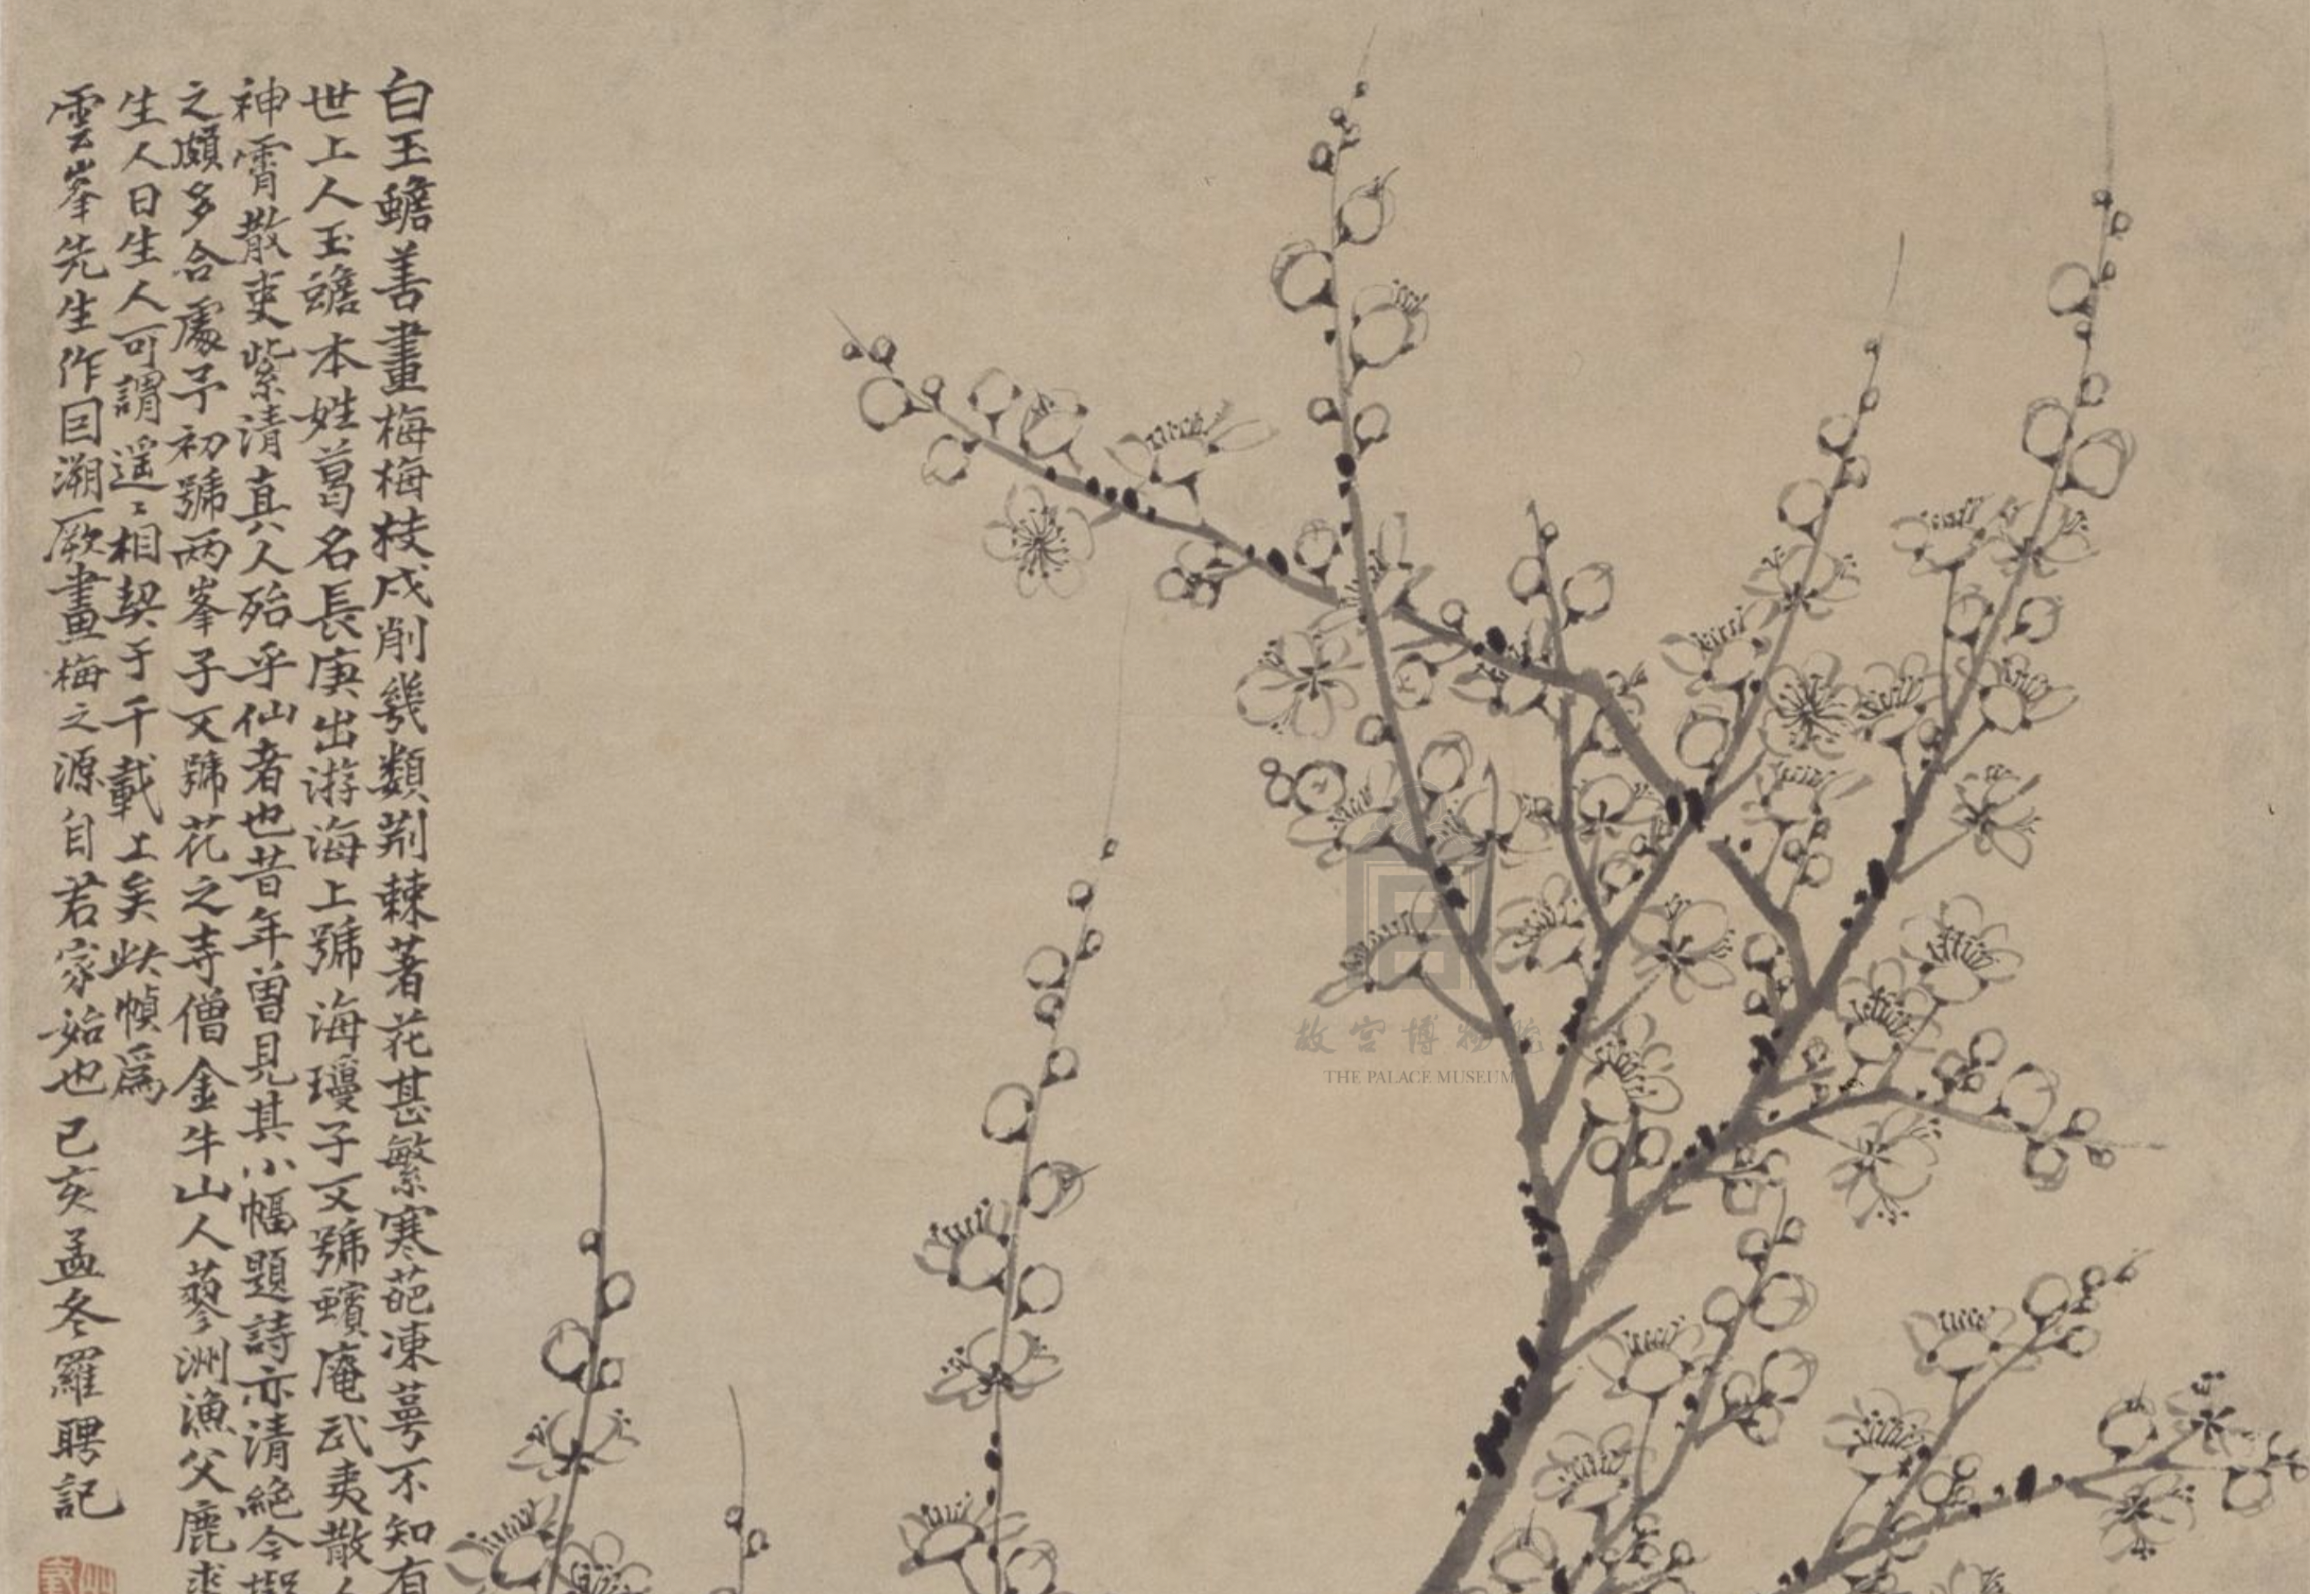 白玉蟾善畫梅梅枝戍削幾類荆棘著花甚繁寒葩凍萼不知有
世上人玉蟾本姓葛名長庚出游海上號海瓊子又號蠙庵武夷散人
神霄散吏紫清真人殆乎仙者也昔年曾見其小幅題詩亦清絶今擬
之頗多合處予初號兩峯子又號花之寺僧金牛山人蓼洲漁父鹿
生人日生人可謂遥〻相契于千載上矣此幀爲
雲峯先生作因溯厥畫梅之源自若家始也己亥孟冬羅聘記
故宫博物院
THE PALACE MUSEUM